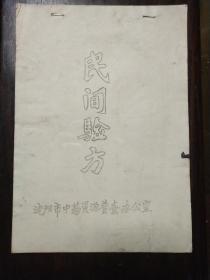 民间验方
沈阳市中药资源普查办公室